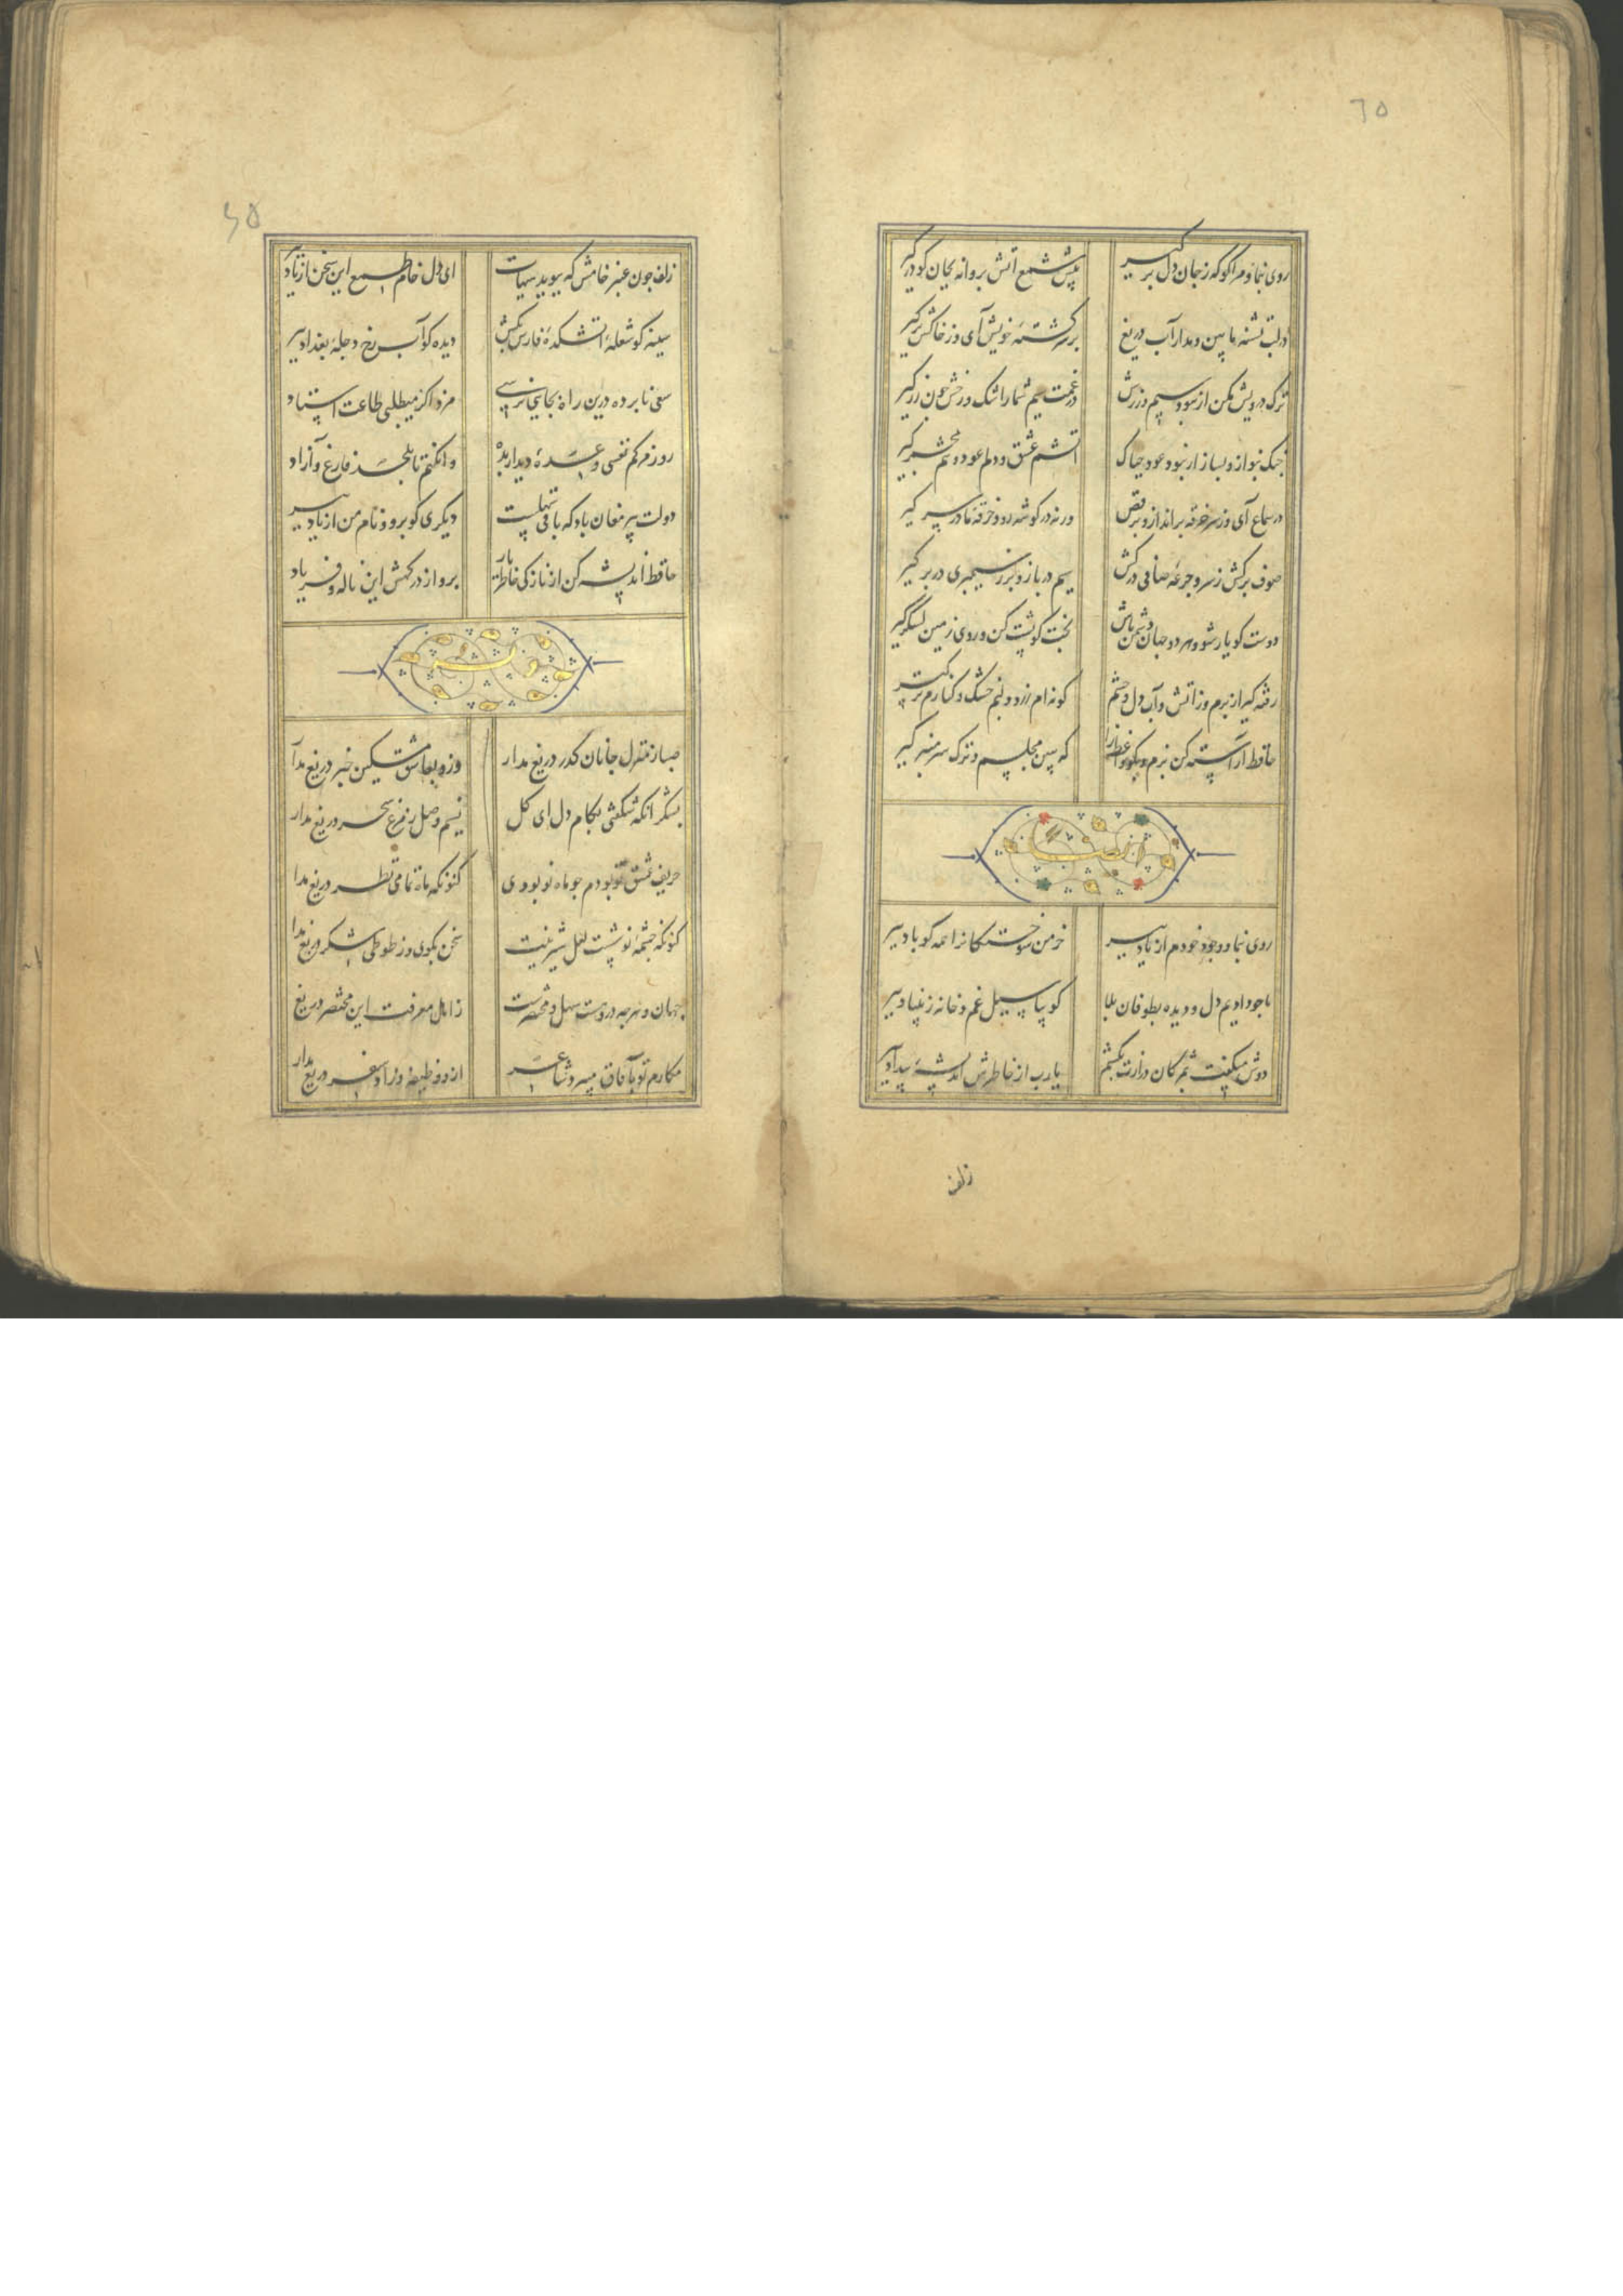 ٦٥
روی نما و مرا گو که ز جان دل برگیر
پیش شمع آتش پروانه بجان گو درگیر
در لب تشنه ما بین و مدار آب دریغ
بر سر کشته خویش آی و ز خاکش برگیر
ترک درویش مکن ار نبود سیم و زرش
در غمت سیم شمار اشک و رخش چون زر گیر
چنک بنواز و بساز ار نبود عود چه باک
آتشم عشق و دلم عود و تنم مجمر گیر
در سماع آی و ز سر خرقه برانداز و برقص
ورنه در گوشه رو و خرقه ما در سر گیر
صوف برکش ز سر و جرعه صافی درکش
سیم درباز و بزر سیمبری در بر گیر
دوست گو یار شو و هر دو جهان دشمن باش
بخت گو پشت کن و روی زمین لشکر گیر
رفته گیر از برم وز آتش و آب دل و چشم
گونه ام زرد و لبم خشک و کنارم تر گیر
حافظ آراسته کن بزم و بگو واعظ را
که ببین مجلسم و ترک سر منبر گیر
روی نما و وجود خودم از یاد ببر
خرمن سوختگانرا همه گو باد ببر
ما چو دادیم دل و دیده بطوفان بلا
گو بیا سیل غم و خانه ز بنیاد ببر
دوش میگفت بمژگان درازت بکشم
یارب از خاطرش اندیشه بیداد ببر
زلف
٦٥
زلف چون عنبر خامش که ببوید هیهات
ای دل خام طمع این سخن از یاد ببر
سینه گو شعله آتشکده فارس بکش
دیده گو آب رخ دجله بغداد ببر
سعی نابرده درین راه بجایی نرسی
مزد اگر میطلبی طاعت استاد
روز مرگم نفسی وعده دیدار بده
وانگهم تا بلحد فارغ و آزاد
دولت پیر مغان باد که باقی سهلست
دیگری گو برو و نام من از یاد ببر
حافظ اندیشه کن از نازکی خاطر یار
برو از درگهش این ناله و فریاد
صبا ز منزل جانان گذر دریغ مدار
وزو بعاشق مسکین خبر دریغ مدار
بشکر آنکه شکفتی بکام دل ای گل
نسیم وصل ز مرغ سحر دریغ مدار
حریف عشق تو بودم چو ماه نو بودی
کنونکه ماه تمامی نظر دریغ مدار
کنونکه چشمه نوشست لعل شیرینت
سخن بگوی و ز طوطی شکر دریغ مدار
جهان و هر چه دروست سهل و مختصرست
ز اهل معرفت این مختصر دریغ
مکارم تو بآفاق میبرد شاعر
ازو وظیفه و زاد سفر دریغ مدار